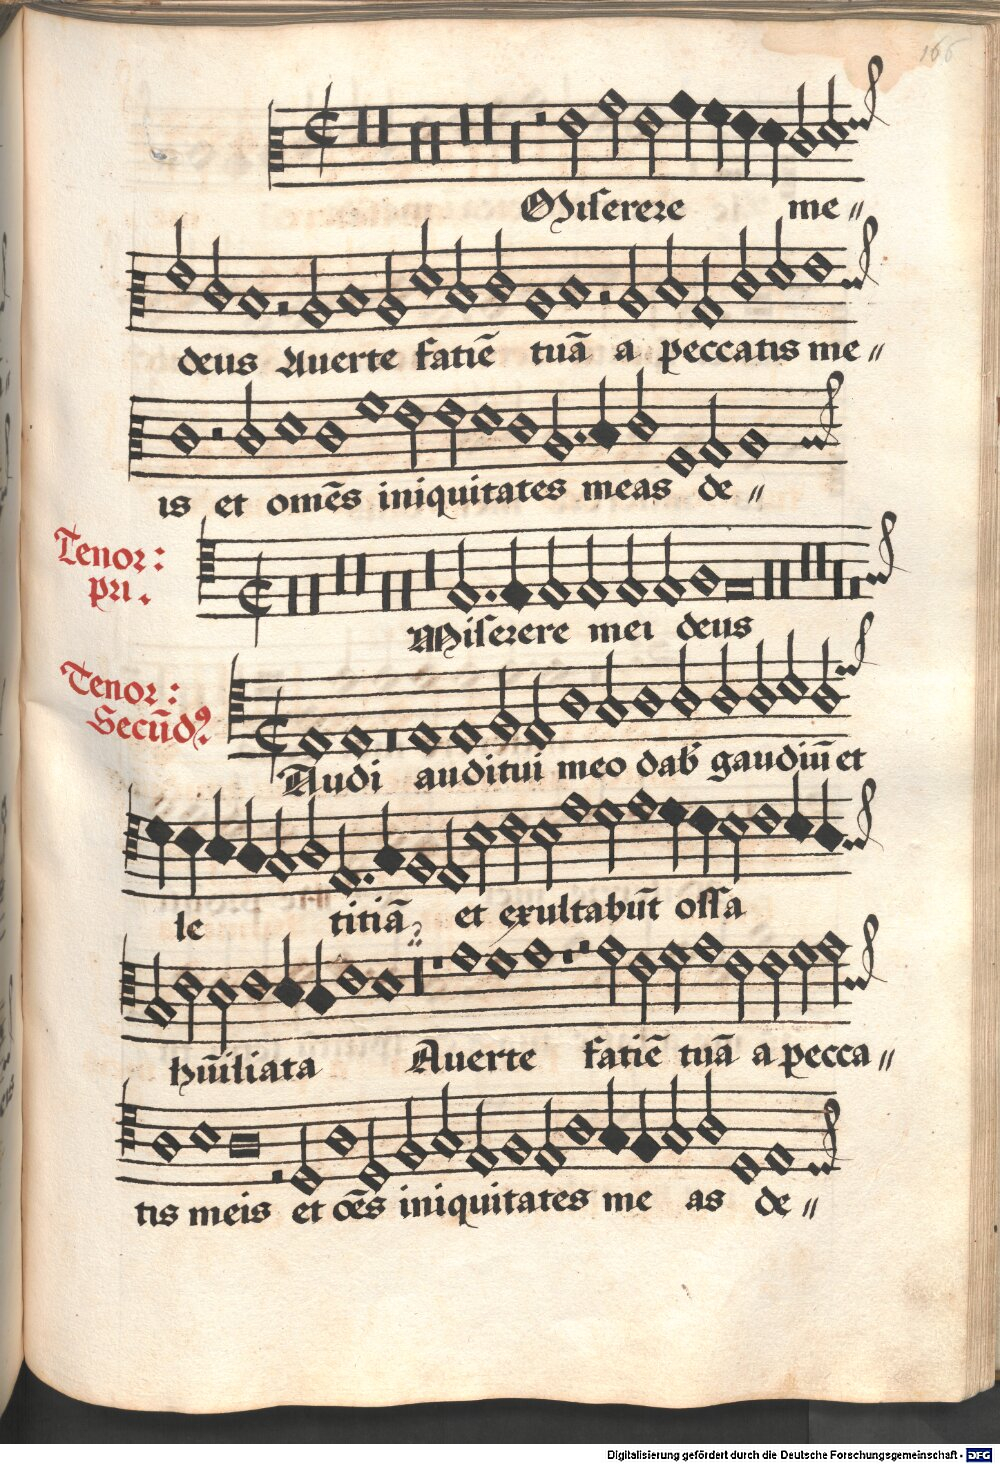 166
Miserere me〃
deus Auerte fatiē tuā a peccatis me〃
is et omēs iniquitates meas de〃
Tenor:
pri.
Miserere mei deus
Tenor:
Secūdꝰ.
Audi auditui meo dab gaudiū et
le titiā et exultabūt ossa
hūiliata Auerte fatiē tuā a pecca〃
tis meis et oēs iniquitates me as de〃
Digitalisierung gefördert durch die Deutsche Forschungsgemeinschaft - DFG